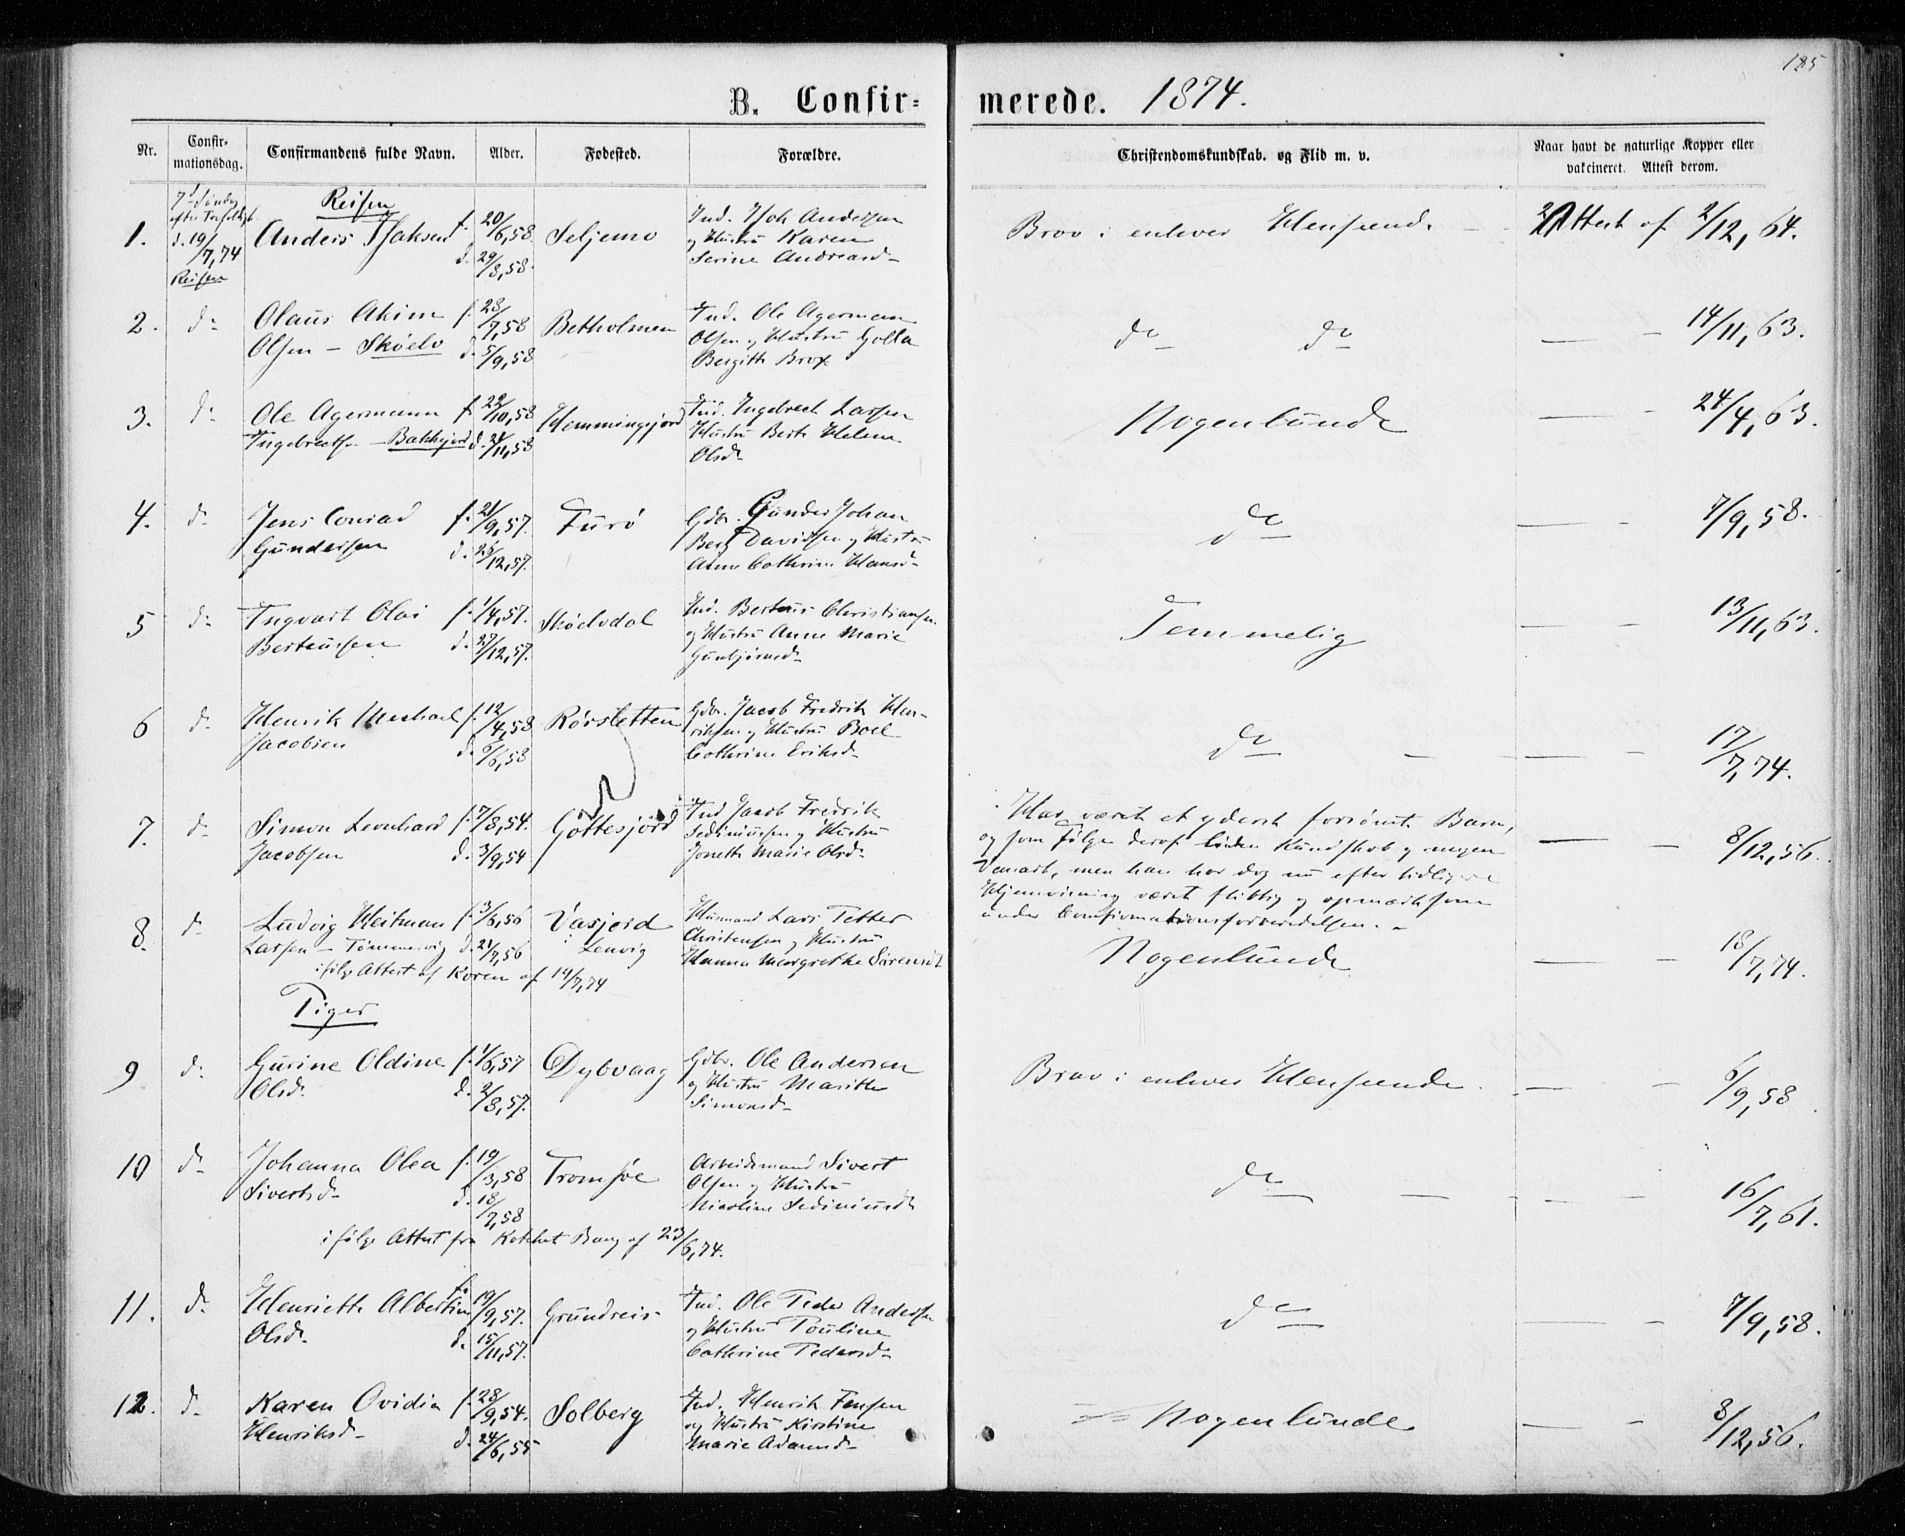 185
B. Confir=
merede. 1874.
Nr.
Confir-
mationsdag.
Confirmandens fulde Navn.
Alder.
Fødested.
Forældre.
Christendomskundskab. og Flid m. v.
Naar havt de naturlige Kopper eller
vakcineret. Attest derom.
Reisen
1.
7de Søndag
efter Trefoldigh.
d. 19/7,74
Reisen
Anders Isaksen
f. 20/6,58
d. 29/8,58.
Seljemo
Ind. Isak Anderssen
og Hustru Karen
Serine Andreasd.
Brav i enhver Henseende
Attest af 2/12, 64.
2.
do
Olaus Akim
Olsen – Sköelv
f. 28/7,58
d. 5/9,58
Betholmen
Ind. Ole Agermann
Olsen og Hustru Golla
Bergitte Brox
do do
14/11, 63.
3.
do
Ole Agermann
Ingebretsen – Bakkejord
f. 22/10,58
d. 21/11,58
Hemmingsjord
Ind. Ingebrech Larsen
Hustru Berte Helene
Olsd.
Nogenlunde
24/4, 63.
4.
do
Jens Conrad
Gundersen
f. 21/9,57.
d. 25/12,57.
Furö
Gdbr. Gunder Johan
Berg Davidsen og Hustru
Anne Cathrine Hansd.
do
7/9, 58.
5
do
Ingvart Olai
Berteussen
f. 1/4,57.
d. 27/12,57.
Sköelvdal
Ind. Berteus Christiansen
og Hustru Anne Marie
Gunbjörnsd.
Temmelig
13/11, 63.
6
do
Henrik Meshael
Jacobsen
f. 12/4,58
d. 6/6,58
Rörsletten
Gdbr. Jacob Fredrik Hen-
riksen og Hustru Boel
Cathrine Eriksd.
do
17/7, 74.
7.
do
Simon Leonhard
Jacobsen
f. 7/8,54.
d. 3/9,54
Gottesjörd
Ind Jacob Fredrik
Sediniussen og Hustru
Jonette Marie Olsd.
Har været et yderst forsömt Barn,
og som Fölge deraf liden Kundskab og megen
Vanart, men han har dog nu efter tidligere
Hjemvisning været flittig og opmærksom
under Confirmationsforberedelsen.
8/12, 56.
8.
do
Ludvig Heitman
Larsen – Tömmervig
f. 3/6,56
d. 21/7,56
Vasjord
i Lenvig
Husmand Lars Petter
Christensen og Hustru
Hanna Margrethe Sörensd.
ifölge Attest af Koren af 14/7,74
Nogenlunde
18/7, 74.
Piger
9
do
Gurine Oldine
Olsd.
f. 1/6,57
d. 2/8,57.
Dybvaag
Gdbr. Ole Andersen
og Hustru Marithe
Simonsd.
Brav i enhver Henseende.
6/9, 58
10
do
Johanna Olea
Sivertsd.
f. 19/3,58
d. 18/7,58
Tromsöe
Arbeidsmand Sivert
Olsen og Hustru
Nicoline Sediniusd.
ifölge Attest fra Kateket Bang af 23/6,74.
do
16/7, 61.
11.
do
Henriette Albertine
Olsd.
f. 19/9,57.
d. 15/11,57.
Grundreis
Ind. Ole Peder Andersen
og Hustru Pouline
Cathrine Pedersd.
do
7/9, 58.
12.
do
Karen Ovidia
Henriksd.
f. 28/9,54.
d. 24/6,55
Solberg
Ind. Henrik Jensen
og Hustru Kirstine
Marie Adamsd.
Nogenlunde
8/12, 56.